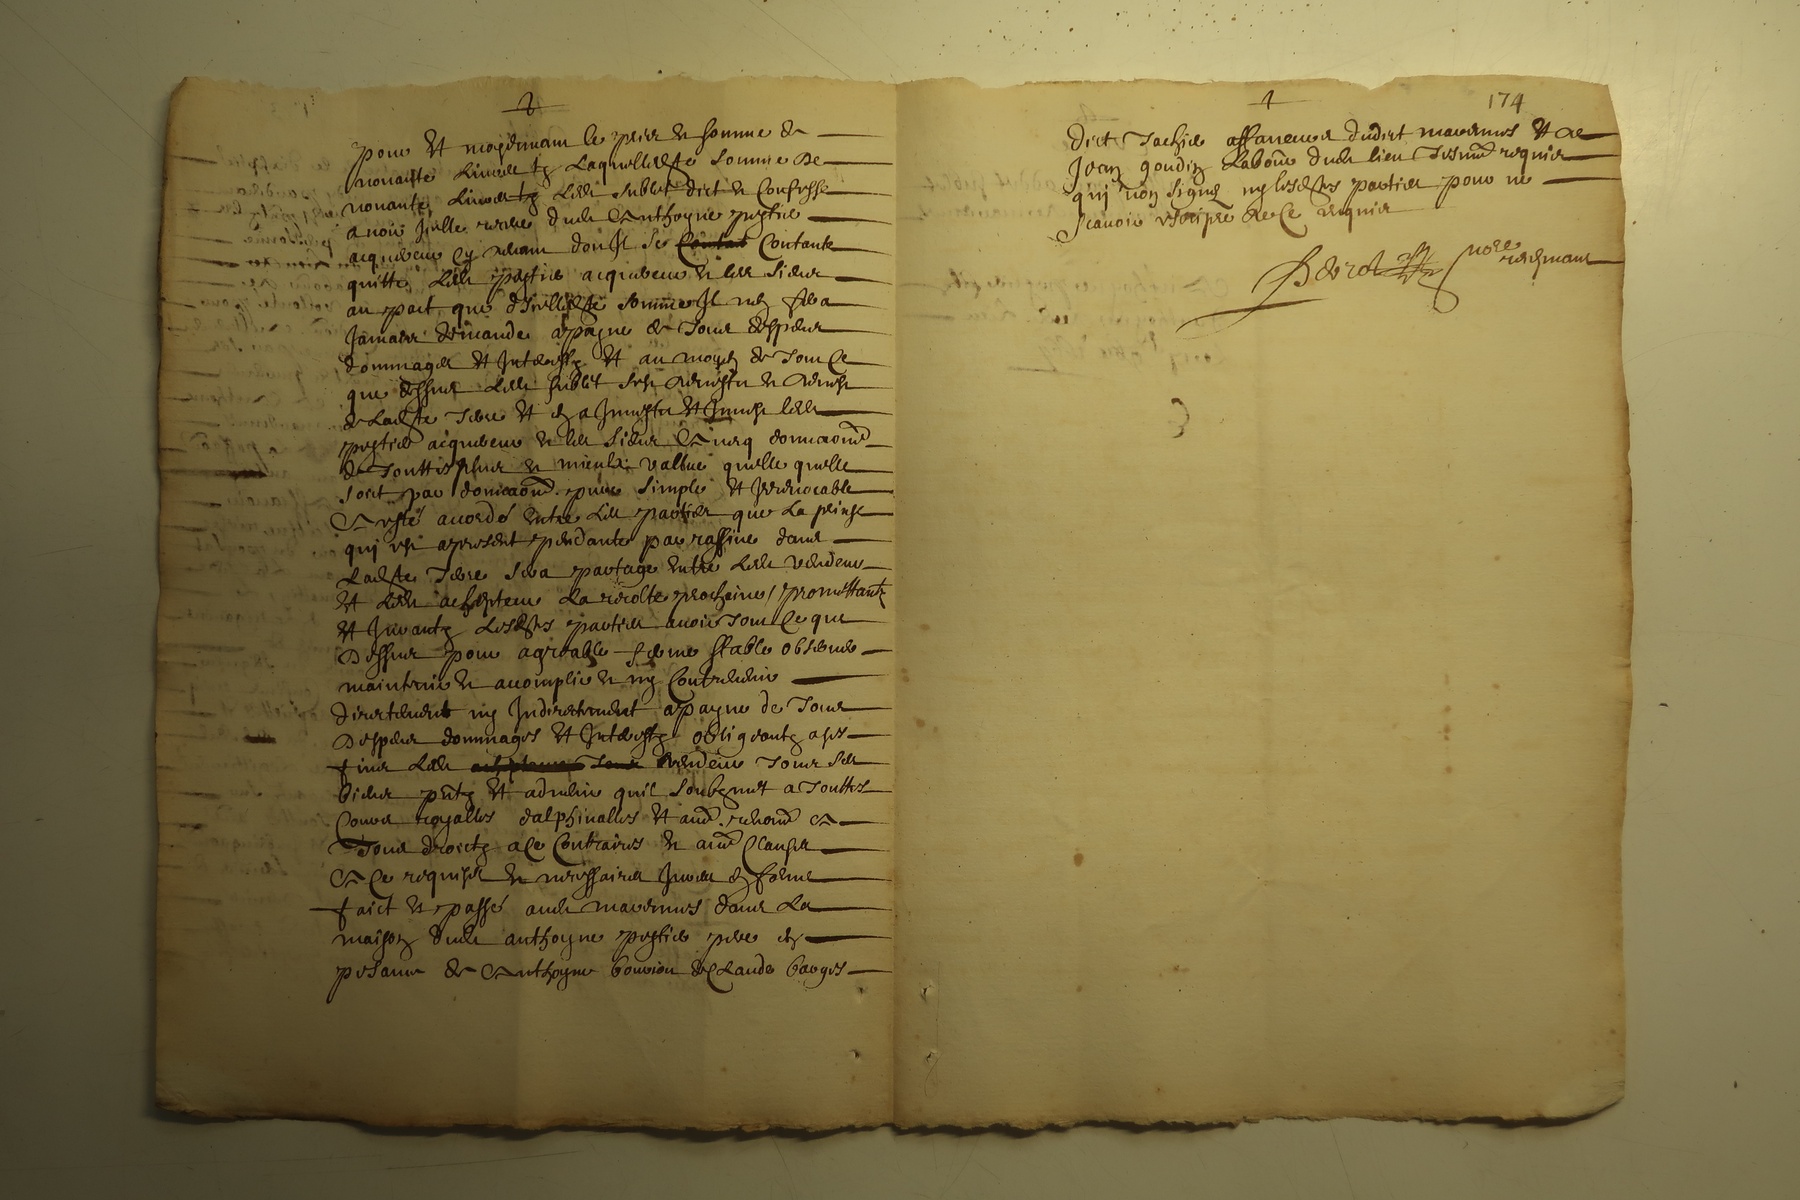 pour et moyennant le prix et somme de
nonante livres tz laquelle somme de
nonante livres tz led sublet dict et confesse
avoir heue receue dud Anthoyne pestier
acquereur cy devant dont Il se Contante
quitte led pestier acquereur et les sieurs
au pact que d'icelle somme Il nen fera
Jamais demande a payne de tous despens
dommages et Interestz et au moyen de tout ce
que dessus led sublet sest devestu et devest
de ladte terre et en a Investu et Invest led
pestier acquereur et les sieurs Avecq donnaon
de touttes plus et mieulx vallue quelle quelle
soict par donnaon pure simple et Irrevocable
A esté acordé entre les parties que la prinse
qui est a present pendante par rassine dans
Ladte terre sera partage entre led vendeur
et led achepteur La recolte prochaine / promettantz
et Jurantz lesdtes parties avoir tout ce que
Dessus pour agreable ferme stable observer
maintenir et accomplir et ny Contrevenir
directement ny Indirectement a payne de tous
Despens dommages et Interestz obligeantz a ces
fins led vendeur tous ses
biens pntz et advenir quil soubzmet a touttes
Cours royalles dalphinalles et au
tous droictz a ce Contraires et au Clauses
A Ce requises et necessaires Jures en forme
faict et passé aud mavernes dans La
maison dud anthoyne pestier pere en
presance de Anthoyne bouvier Claude barges
174
dict Jachie affaneur dudict mavernes et de
Jean goudin Labour dud lieu tesmo requis
qui non signe ny lesdtes parties pour ne
scavoir escripre de Ce requis
nore recepvant